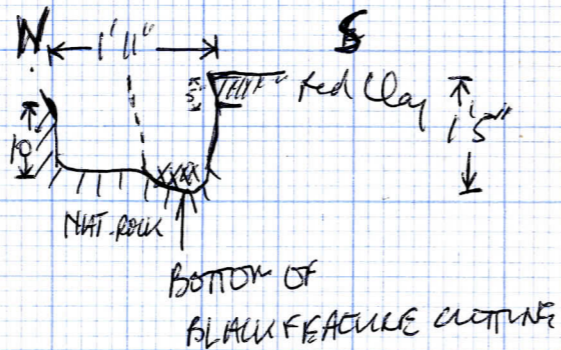 N 1'11" S
5" Red Clay 1'5"
10
NAT. ROCK
BOTTOM OF
BLACK FEATURE CUTTING